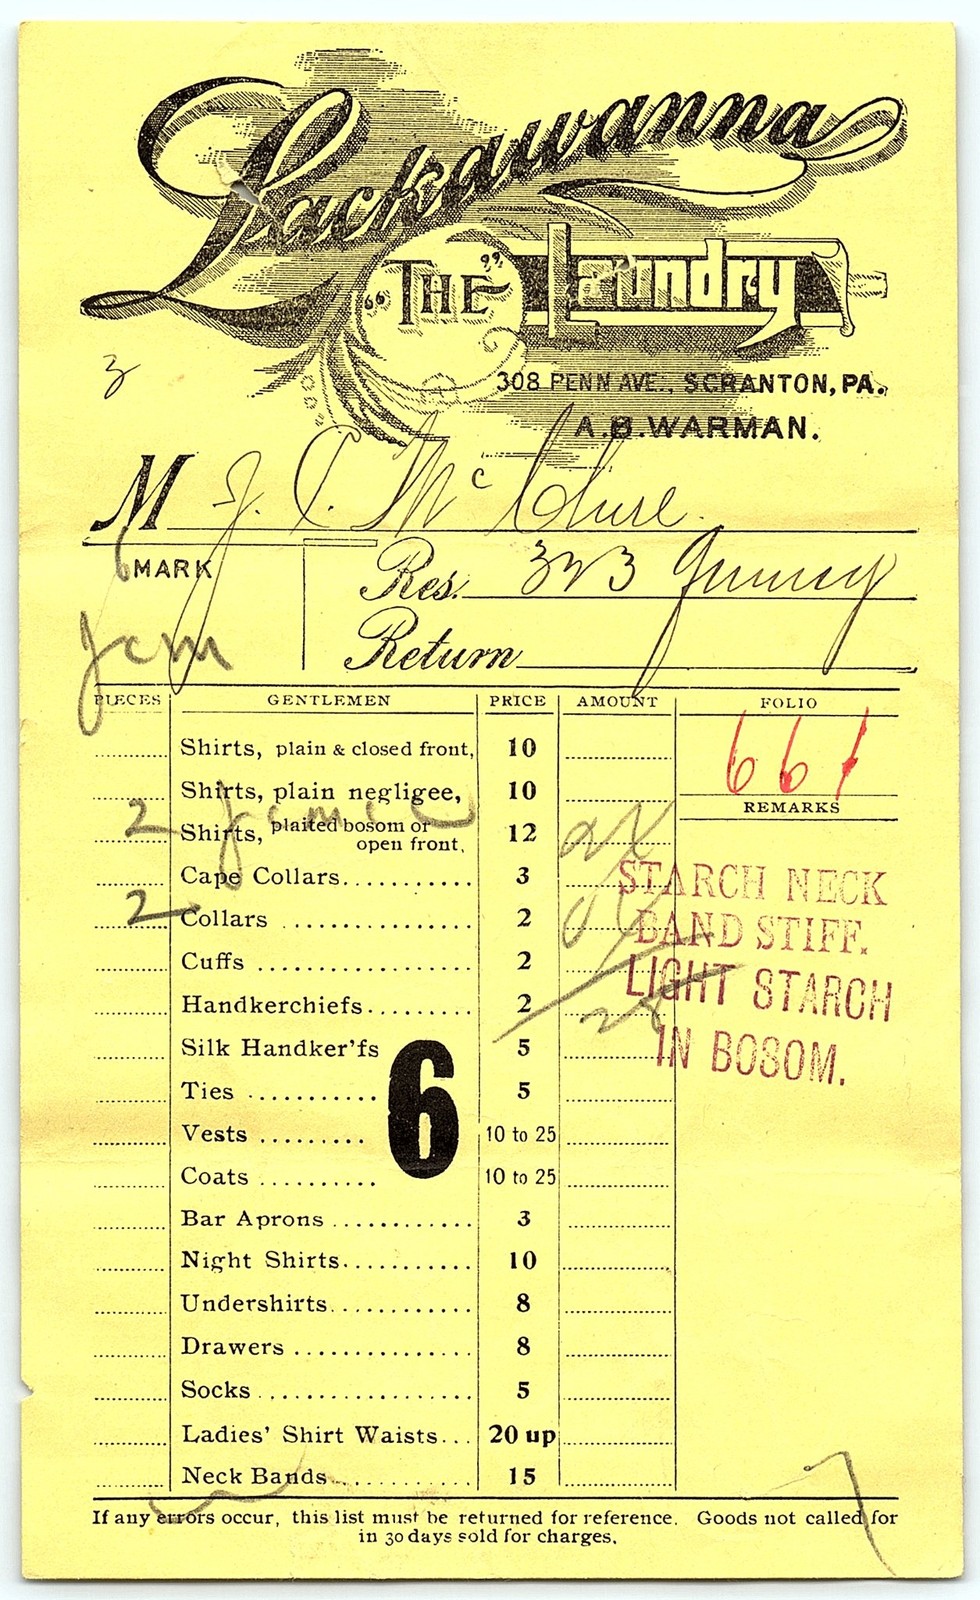 Lackawanna
"THE" Laundry
308 PENN AVE., SCRANTON, PA.
3
A.B. WARMAN.
M J. C. McClure.
MARK
Res. 323 Quincy
Jcm
Return
PIECES GENTLEMEN PRICE AMOUNT FOLIO
Shirts, plain & closed front, 10
661
Shirts, plain negligee, 10
REMARKS
2 Shirts, plaited bosom or open front, 12 24
Cape Collars 3
STARCH NECK
2 Collars 2
BAND STIFF.
Cuffs 2
LIGHT STARCH
Handkerchiefs 2
28
IN BOSOM.
Silk Handker'fs 5
6
Ties 5
Vests 10 to 25
Coats 10 to 25
Bar Aprons 3
Night Shirts 10
Undershirts 8
Drawers 8
Socks 5
Ladies' Shirt Waists 20 up
Neck Bands 15
If any errors occur, this list must be returned for reference. Goods not called for
in 30 days sold for charges.